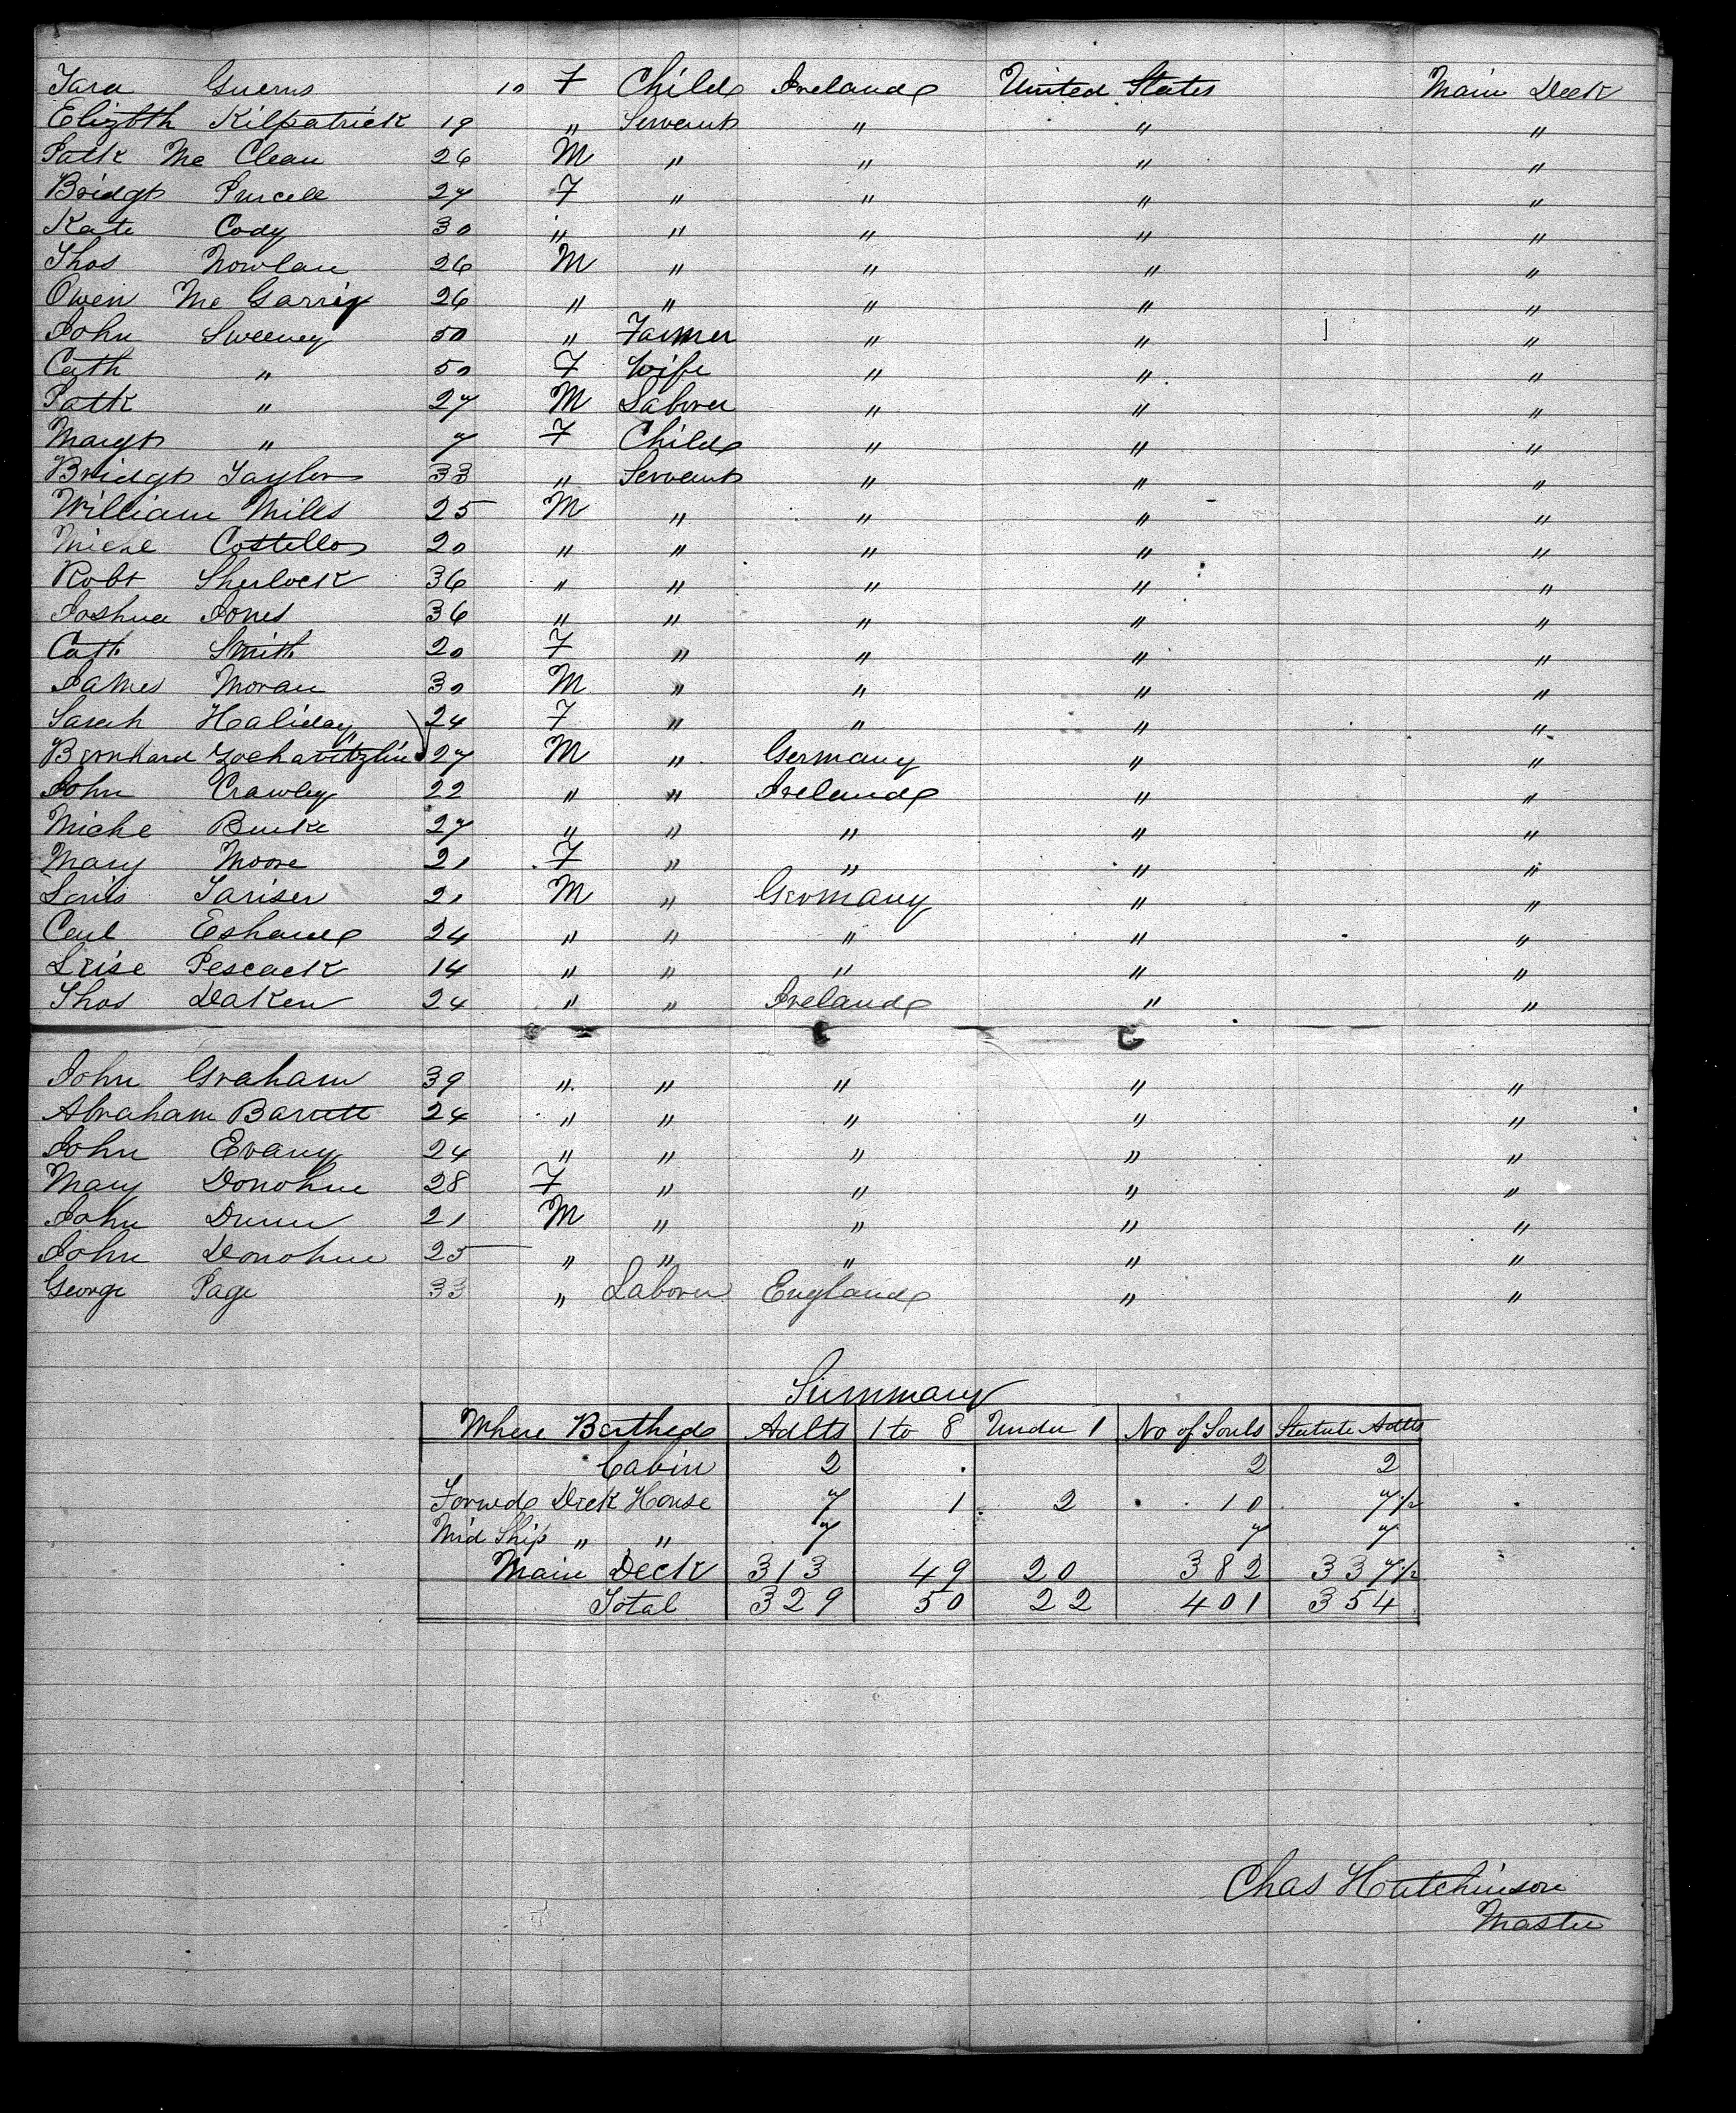 Tara Guerns 10 F Child Ireland United States Main Deck
Elizbth Kilpatrick 19 " Servant " " "
Patk Mc Clean 26 M " " " "
Bridgt Purcell 27 F " " " "
Kate Cody 30 " " " " "
Thos Nowlan 26 M " " " "
Owen Mc Garriy 26 " " " " "
John Sweeney 50 " Farmer " " "
Cath " 50 F Wife " " "
Patk " 27 M Laborer " " "
Margt " 7 F Child " " "
Bridgt Taylor 33 " Servant " " "
William Mills 25 M " " " "
Michl Costello 20 " " " " "
Robt Sherlock 36 " " " " "
Joshua Jones 36 " " " " "
Cath Smith 20 F " " " "
James Moran 30 M " " " "
Sarah Haliday 24 F " " " "
Bernhard 27 M " Germany " "
John Crawley 22 " " Ireland " "
Michl Burke 27 " " " " "
Mary Moore 21 F " " " "
Louis Tariser 21 M " Germany " "
Carl Eshand 24 " " " " "
Pescack 14 " " " " "
Thos Daken 24 " " Ireland " "
John Graham 39 " " " " "
Abraham Barrett 24 " " " " "
John Evany 24 " " " " "
Mary Donohue 28 F " " " "
John Dunn 21 M " " " "
John Donohue 25 " " " " "
George Page 33 " Laborer England " "
Summary
Where Berthed Adlts 1 to 8 Under 1 No of Souls Statute Adlts
Cabin 2 2 2
Forwd Deck House 7 1 2 10 7½
Mid Ship " " 7 7 7
Main Deck 313 49 20 382 337½
Total 329 50 22 401 354
Chas Hutchinson
Master